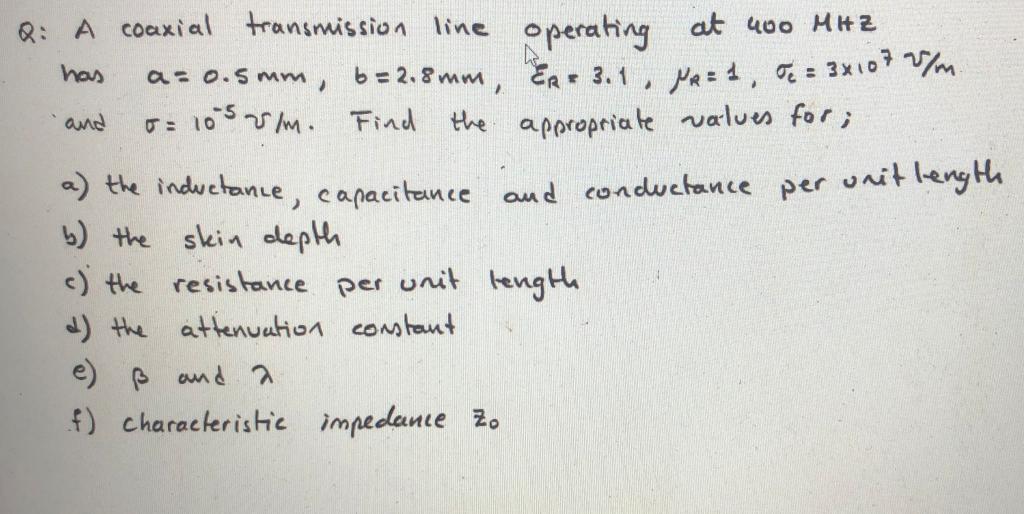 Q: A coaxial transmission line operating at 400 MHZ
has a = 0.5mm, b = 2.8mm, ƐR = 3.1, μR = 1, σc = 3x10⁷ ℧/m
and σ = 10⁻⁵ ℧/m. Find the appropriate values for;
a) the inductance, capacitance and conductance per unit length
b) the skin depth
c) the resistance per unit length
d) the attenuation constant
e) β and λ
f) characteristic impedance Zo